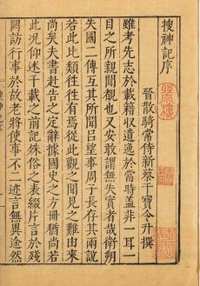 搜神記序
晉散騎常侍新蔡干寶令升撰
雖考先志於載籍收遺逸於當時蓋非一耳一
目之所親聞覩也又安敢謂無失實者哉衛朔
失國二傳互其所聞呂望事周子長存其兩說
若此比類往往有焉從此觀之聞見之難由來
尚矣夫書赴告之定辭據國史之方冊猶尚若
此况仰述千載之前記殊俗之表綴片言於殘
闕訪行事於故老將使事不二迹言無異途然